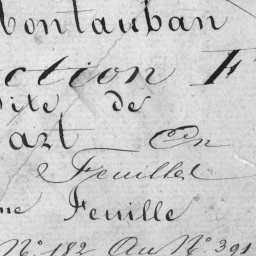 Montauban
ction F
dite de
art En
Feuilles
me Feuille
N° 182 Au N° 391